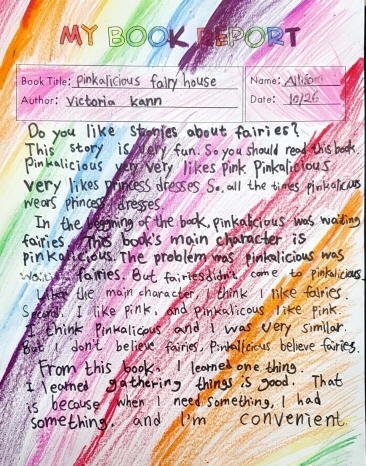 MY BOOK REPORT
Book Title: Pinkalicious fairy house
Name: Allison
Author: Victoria kann
Date: 10/26
Do you like stories about fairies?
This story is very fun. So you should read this book.
Pinkalicious very very likes pink Pinkalicious
very likes princess dresses. So, all the times pinkalicious
wears princess dresses.
In the beginning of the book, pinkalicious was waiting
fairies. This book's main character is
pinkalicious. The problem was pinkalicious was
waiting fairies. But fairies didn't come to pinkalicious.
Like the main character, I think I like fairies.
Second, I like pink, and Pinkalicous like pink.
I think Pinkalicous and I was very similar.
But I don't believe fairies, Pinkalicious believe fairies.
From this book, I learned one thing.
I learned gathering things is good. That
is because when I need something, I had
something, and I'm convenient.